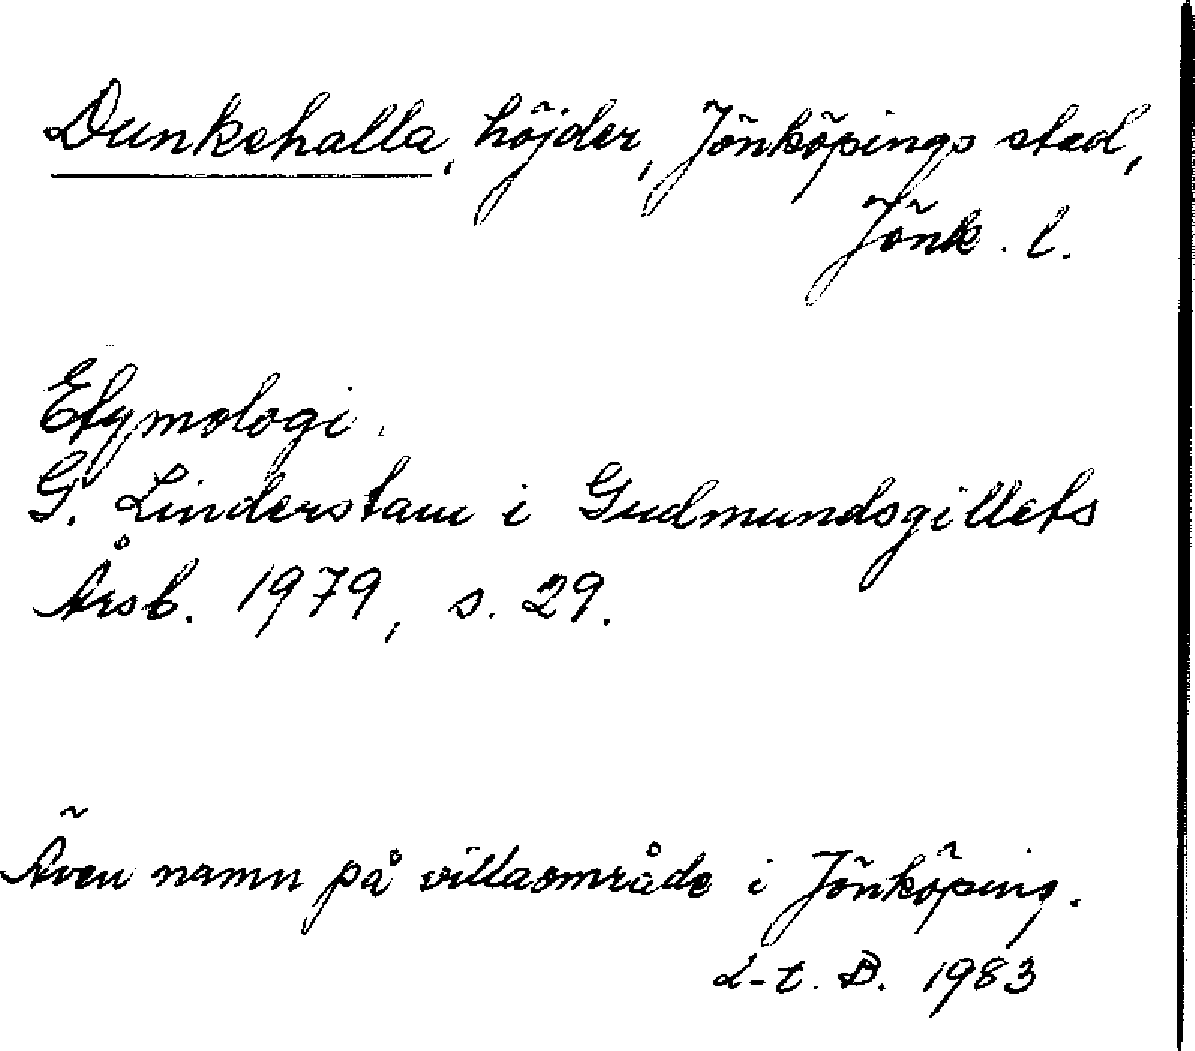 Dunkehalla, höjder, Jönköpings stad,
Jönk. l.
Etymologi.
G. Linderstam i Gudmundsgillets
Årsb. 1979, s. 29.
Även namn på villaområde i Jönköping.
L-t. B. 1983